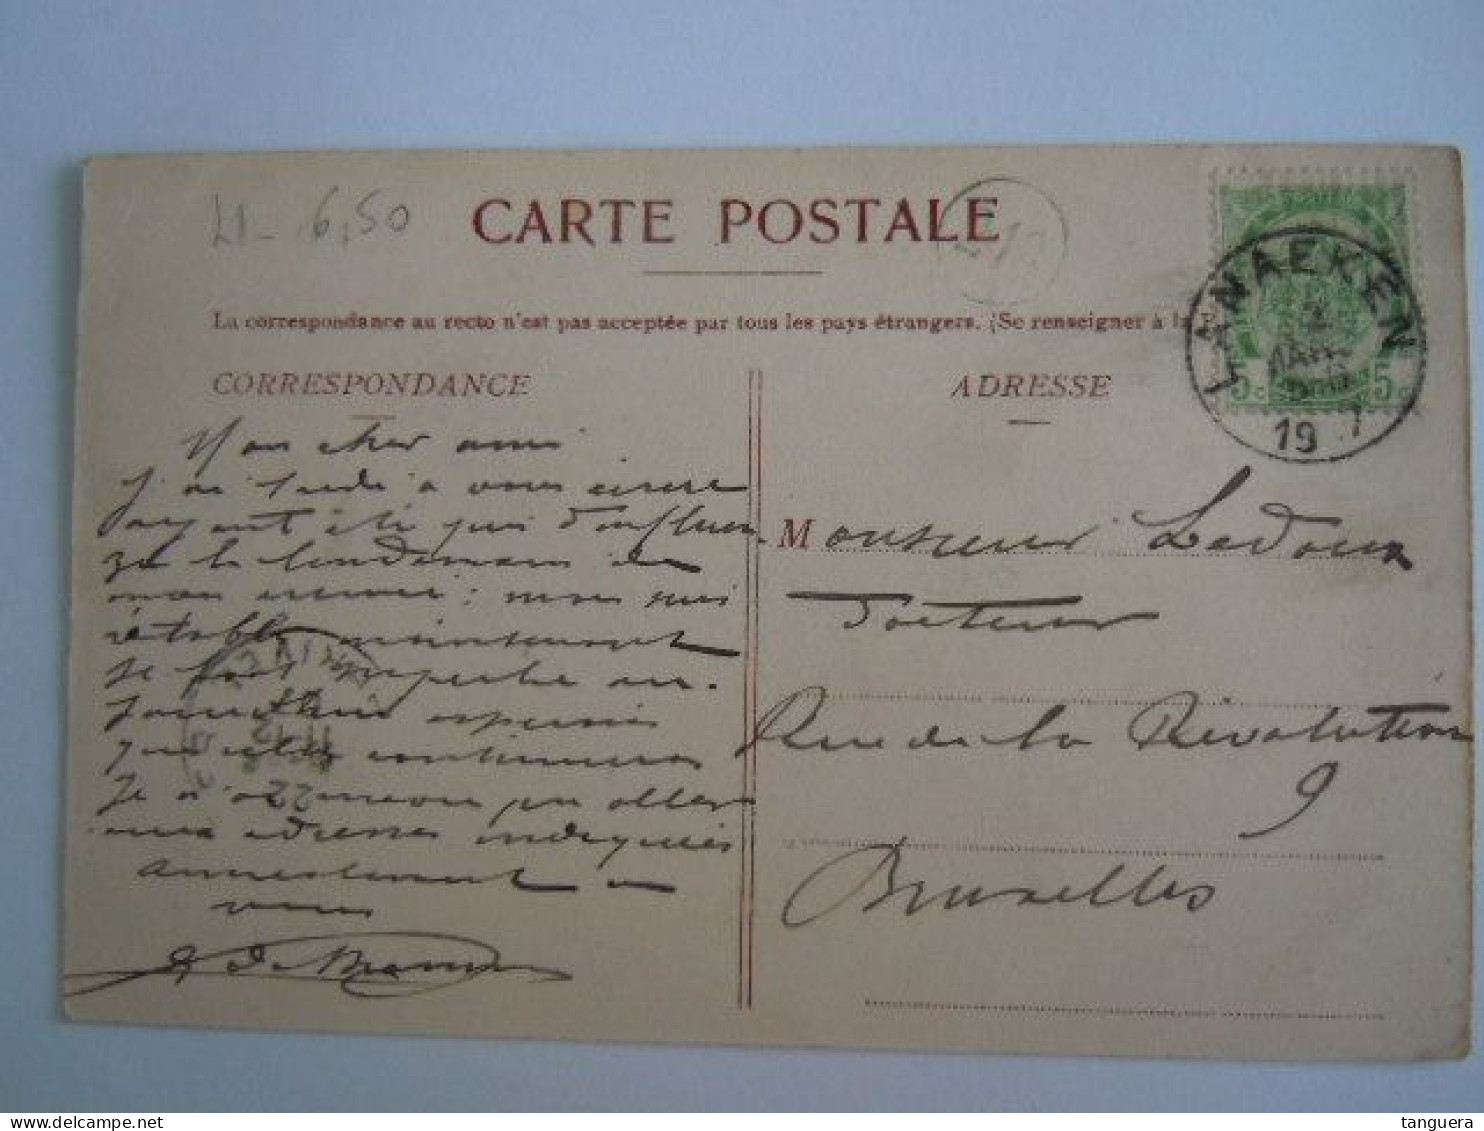 LI - 6,50
CARTE POSTALE
La correspondance au recto n'est pas acceptée par tous les pays étrangers. (Se renseigner à la
CORRESPONDANCE
ADRESSE
LANAEKEN
19 7
5c 5c
Mon cher ami
J'ai tardé à vous écrire
ayant été pris d'influen-
za le lendemain de
mon arrivée : mais suis
rétabli maintenant
se
aujourd'hui
que cela continuera
Je n'ai
aux adresses indiquées
à
vous
Monsieur Ledoux
Docteur
Rue de la Révolution
9
Bruxelles
tanguera